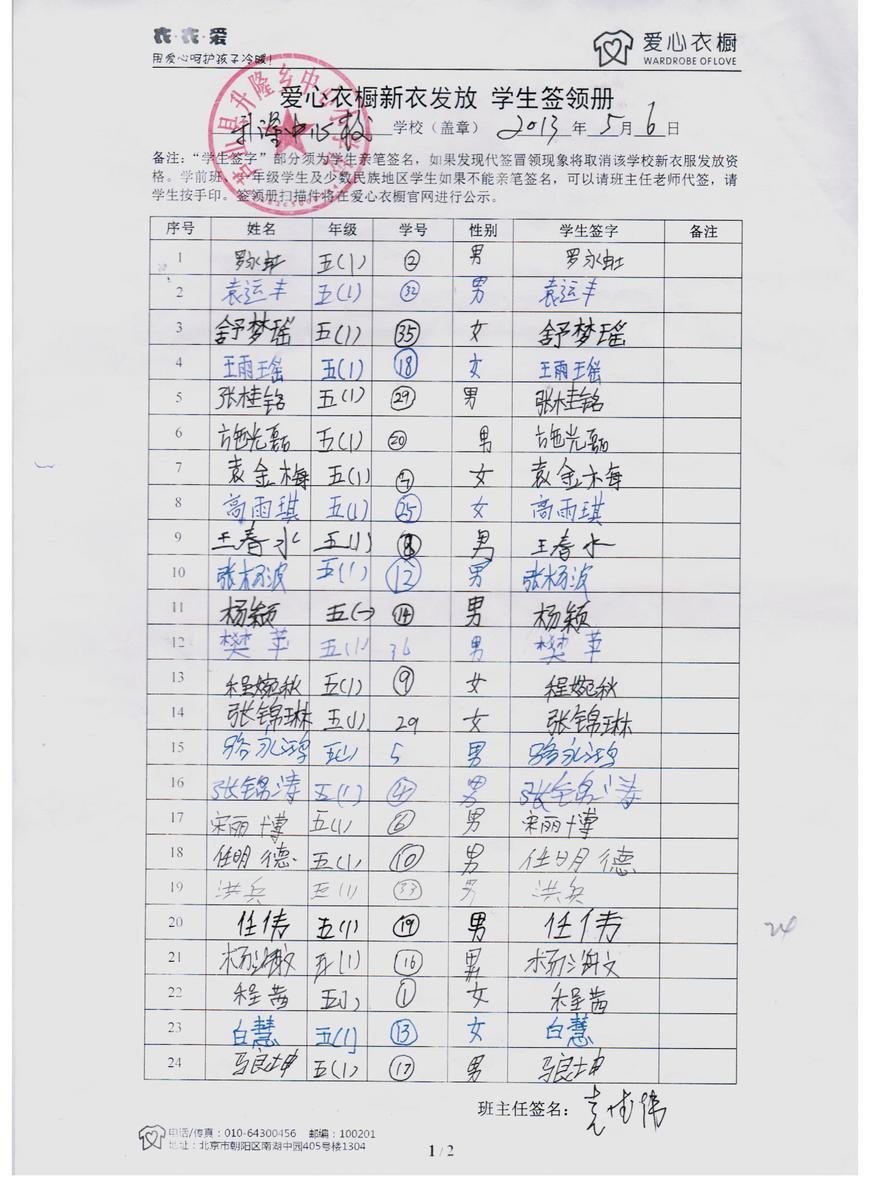 衣·衣·爱
用爱心呵护孩子冷暖!
爱心衣橱
WARDROBE OF LOVE
爱心衣橱新衣发放 学生签领册
升隆中心校 学校（盖章） 2013 年 5 月 6 日
备注：“学生签字”部分须为学生亲笔签名，如果发现代签冒领现象将取消该学校新衣服发放资
格。学前班、一年级学生及少数民族地区学生如果不能亲笔签名，可以请班主任老师代签，请
学生按手印。签领册扫描件将在爱心衣橱官网进行公示。
序号 姓名 年级 学号 性别 学生签字 备注
1 罗永虹 五(1) ② 男 罗永虹
2 袁运丰 五(1) ㉜ 男 袁运丰
3 舒梦瑶 五(1) ㉟ 女 舒梦瑶
4 王雨瑶 五(1) ⑱ 女 王雨瑶
5 张桂铭 五(1) ㉙ 男 张桂铭
6 施光磊 五(1) ⑳ 男 施光磊
7 袁金梅 五(1) ⑦ 女 袁金梅
8 高雨琪 五(1) ㉕ 女 高雨琪
9 王春水 五(1) ⑧ 男 王春水
10 张杨波 五(1) ⑫ 男 张杨波
11 杨颖 五(一) ⑭ 男 杨颖
12 樊苹 五(1) 36 男 樊苹
13 程婉秋 五(1) ⑨ 女 程婉秋
14 张锦琳 五(1). 29 女 张锦琳
15 骆永鸿 五(1) 5 男 骆永鸿
16 张锦涛 五(1) ④ 男 张锦涛
17 宋丽博 五(1) ⑥ 男 宋丽博
18 任明德 五(1) ⑩ 男 任明德
19 洪兵 五(1) ㉝ 男 洪兵
20 任伟 五(1) ⑲ 男 任伟
21 五(1) ⑯ 男
22 程茜 五(1) ① 女 程茜
23 白慧 五(1) ⑬ 女 白慧
24 马良坤 五(1) ⑰ 男 马良坤
24
班主任签名：
电话/传真：010-64300456 邮编：100201
地址：北京市朝阳区南湖中园405号楼1304
1 / 2